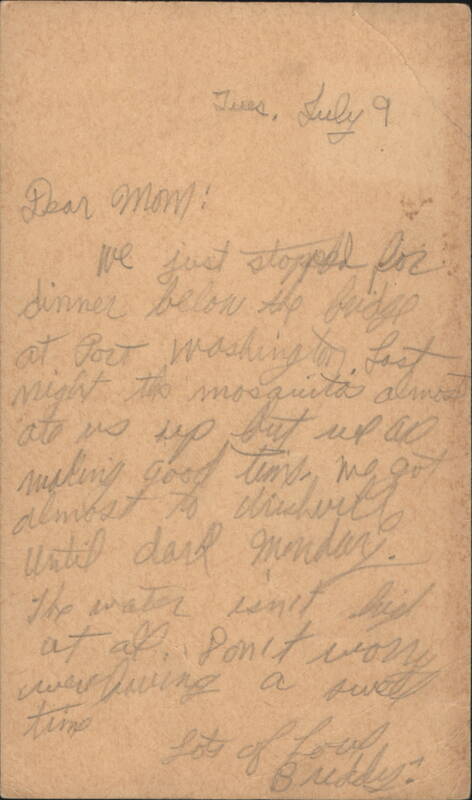 Tues, July 9
Dear Mom!
We just stopped for
dinner below the bridge
at Port Washington, Last
night the mosquitos almost
ate us up but we are
making good time. We got
almost to
until dark Monday.
The water isn't high
at all. Don't worry
were having a swell
time
Lots of Love
Buddy.